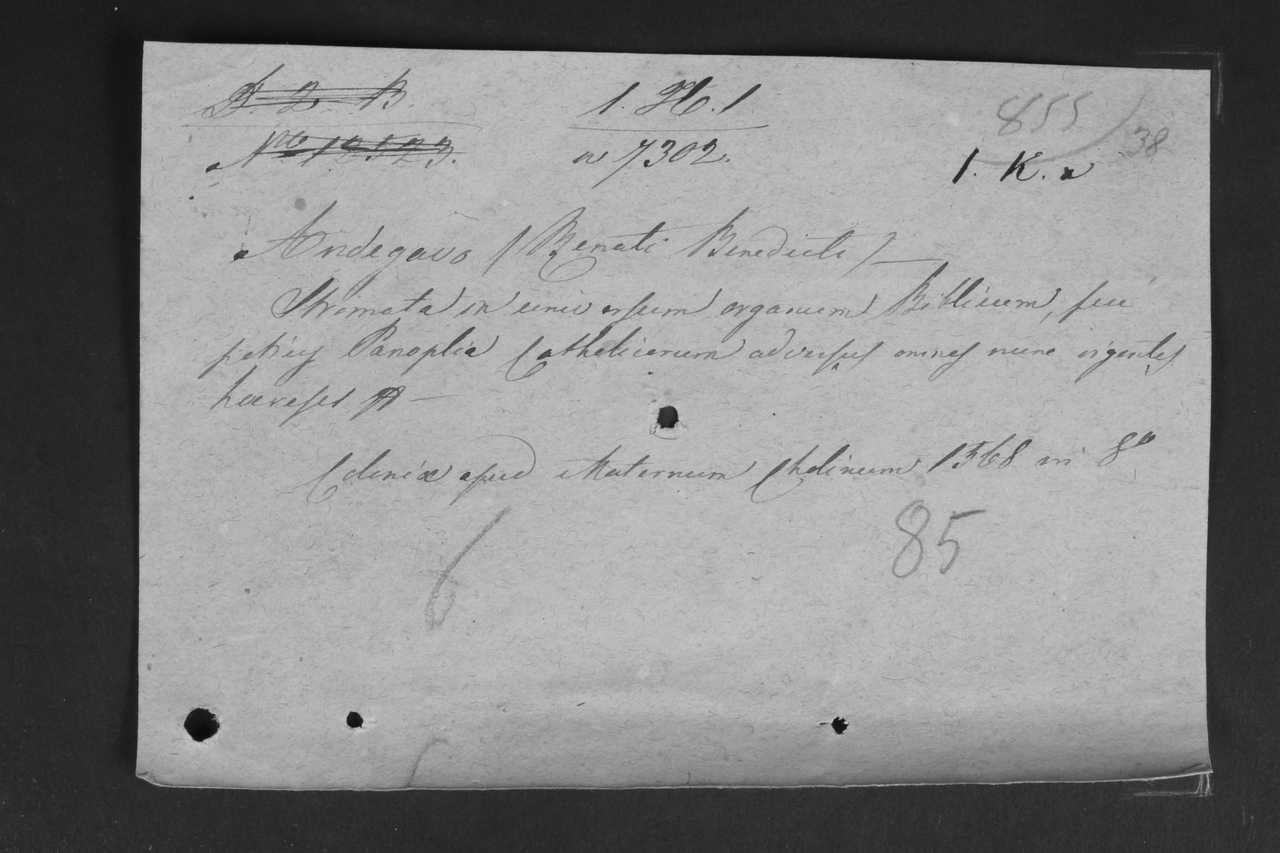 F. 2. B. 1. H. 1 855 / 38
No 10323. n 7302. 1. K. a
Andegavo (Renati Benedicti) —
Stromata in universum organum Biblicum, seu
potius Panoplia Catholicorum adversus omnes nunc vigentes
haereses
Coloniæ apud Maternum Cholinum 1568 in 8o
85